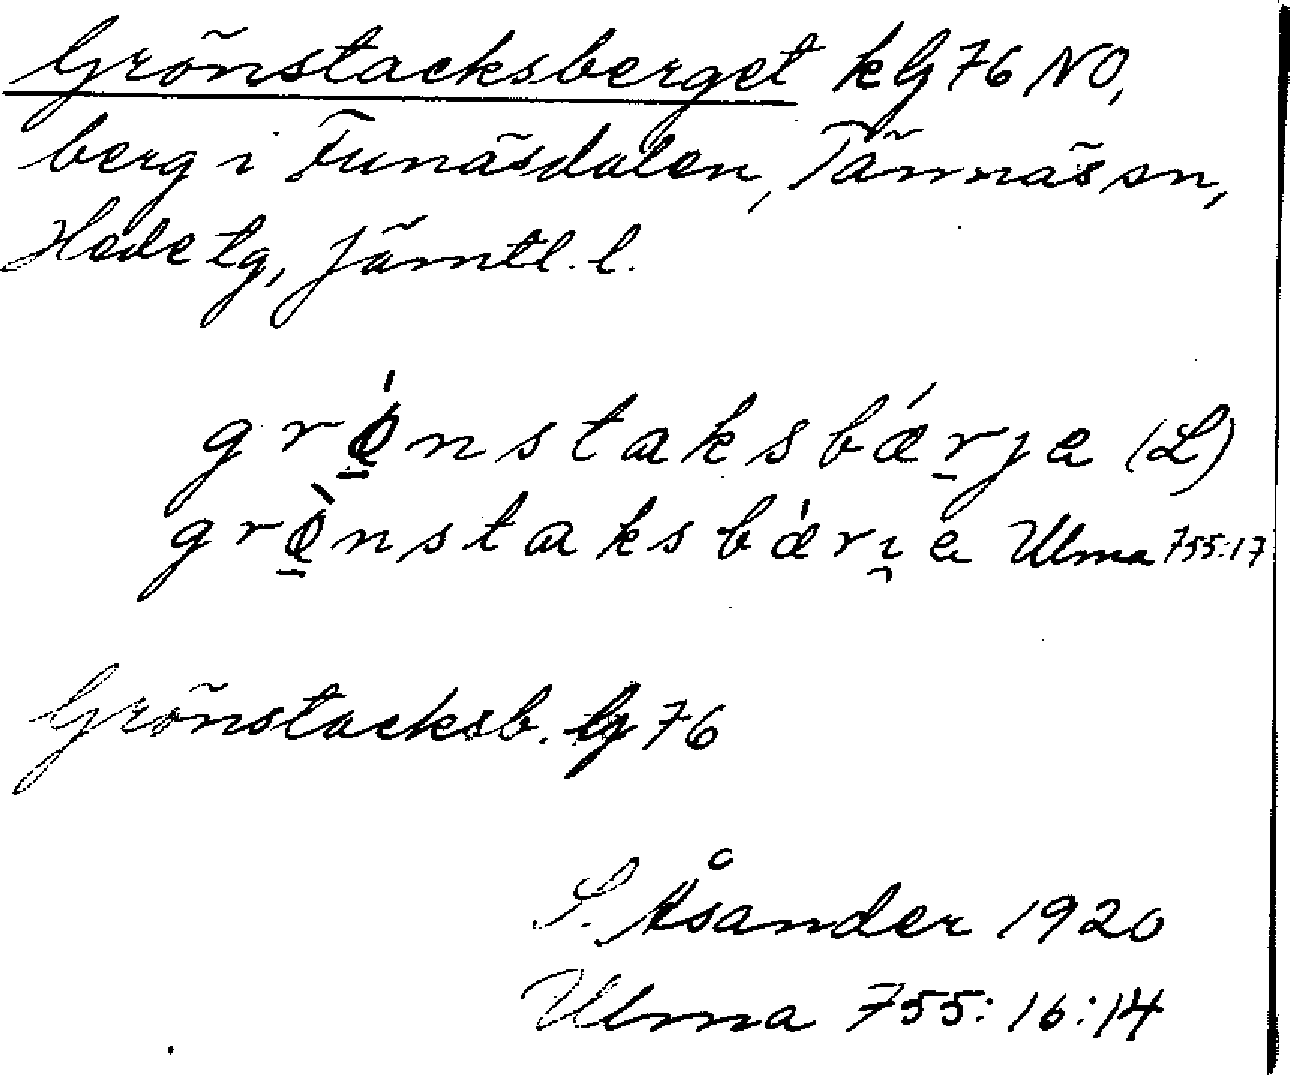 Grönstacksberget kG 76 NO,
berg i Funäsdalen, Tännäs sn,
Hede tg, Jämtl. l.
grǿ̱nstaksbǽṟja (L)
grø̱̀nstaksbǽri̯a Ulma 755:17
Grönstacksb. G 76
S. Åsander 1920
Ulma 755:16:14